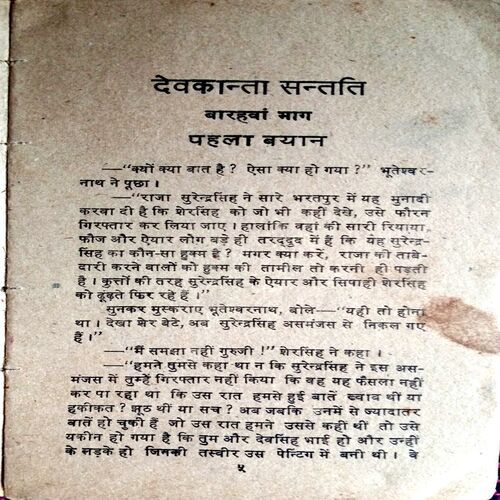 देवकान्ता सन्तति
बारहवां भाग
पहला बयान
—"क्यों क्या बात है ? ऐसा क्या हो गया ?" भूतेश्वर-
नाथ ने पूछा ।
—"राजा सुरेन्द्रसिंह ने सारे भरतपुर में यह मुनादी
करवा दी है कि शेरसिंह को जो भी कहीं देखे, उसे फौरन
गिरफ्तार कर लिया जाए । हालांकि वहां की सारी रियाया,
फौज और ऐयार लोग बड़े ही तरद्दुद में हैं कि यह सुरेन्द्र-
सिंह का कौन-सा हुक्म है ? मगर क्या करें, राजा की ताबे-
दारी करने वालों को हुक्म की तामील तो करनी ही पड़ती
है । कुत्तों की तरह सुरेन्द्रसिंह के ऐयार और सिपाही शेरसिंह
को ढूंढ़ते फिर रहे हैं ।"
सुनकर मुस्कराए भूतेश्वरनाथ, बोले—"यही तो होना
था । देखा शेर बेटे, अब सुरेन्द्रसिंह असमंजस से निकल गए
हैं ।"
—"मैं समझा नहीं गुरुजी !" शेरसिंह ने कहा ।
—"हमने तुमसे कहा था न कि सुरेन्द्रसिंह ने इस अस-
मंजस में तुम्हें गिरफ्तार नहीं किया कि वह यह फैसला नहीं
कर पा रहा था कि उस रात हमसे हुई बातें ख्वाब थीं या
हकीकत ? झूठ थीं या सच ? अब जबकि उनमें से ज्यादातर
बातें हो चुकी हैं जो उस रात हमने उससे कही थीं तो उसे
यकीन हो गया है कि तुम और देवसिंह भाई हो और उन्हीं
के लड़के हो जिनकी तस्वीर उस पेन्टिंग में बनी थी । वे
५